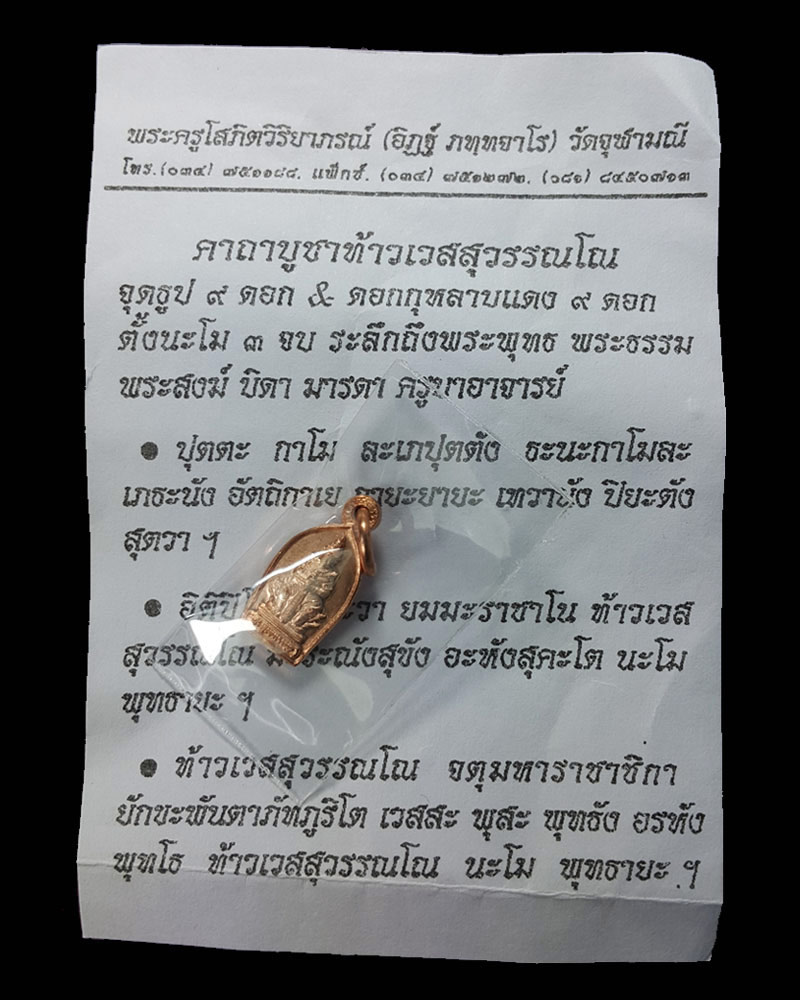 พระครูโสภิตวิริยาภรณ์ (อิฏฐ์ ภทฺทจาโร) วัดจุฬามณี
โทร.(๐๓๔) ๗๕๑๑๘๘. แฟ็กซ์. (๐๓๔) ๗๕๑๒๗๒. (๐๘๑) ๘๔๕๐๗๑๓
คาถาบูชาท้าวเวสสุวรรณโณ
จุดธูป ๙ ดอก & ดอกกุหลาบแดง ๙ ดอก
ตั้งนะโม ๓ จบ ระลึกถึงพระพุทธ พระธรรม
พระสงฆ์ บิดา มารดา ครูบาอาจารย์
● ปุตตะ กาโม ละเภปุตตัง ธะนะกาโมละ
เภธะนัง อัตถิกาเย กายะยายะ เทวานัง ปิยะตัง
สุตวา ฯ
● อิติปิโ วา ยมมะราชาโน ท้าวเวส
สุวรรณโณ ระณังสุขัง อะหังสุคะโต นะโม
พุทธายะ ฯ
● ท้าวเวสสุวรรณโณ จตุมหาราชาชิกา
ยักขะพันตาภัทภูริโต เวสสะ พุสะ พุทธัง อรหัง
พุทโธ ท้าวเวสสุวรรณโณ นะโม พุทธายะ ฯ